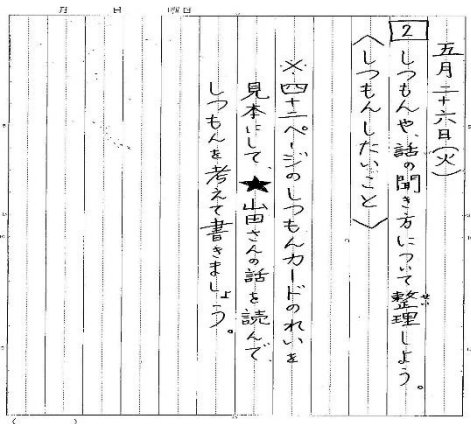 月 日 曜日
五月二十六日(火)
2 しつもんや、話の聞き方について整理しよう。
せい
〈しつもんしたいこと〉
※四十二ページのしつもんカードのれいを
見本にして、★山田さんの話を読んで
しつもんを考えて書きましょう。
( )